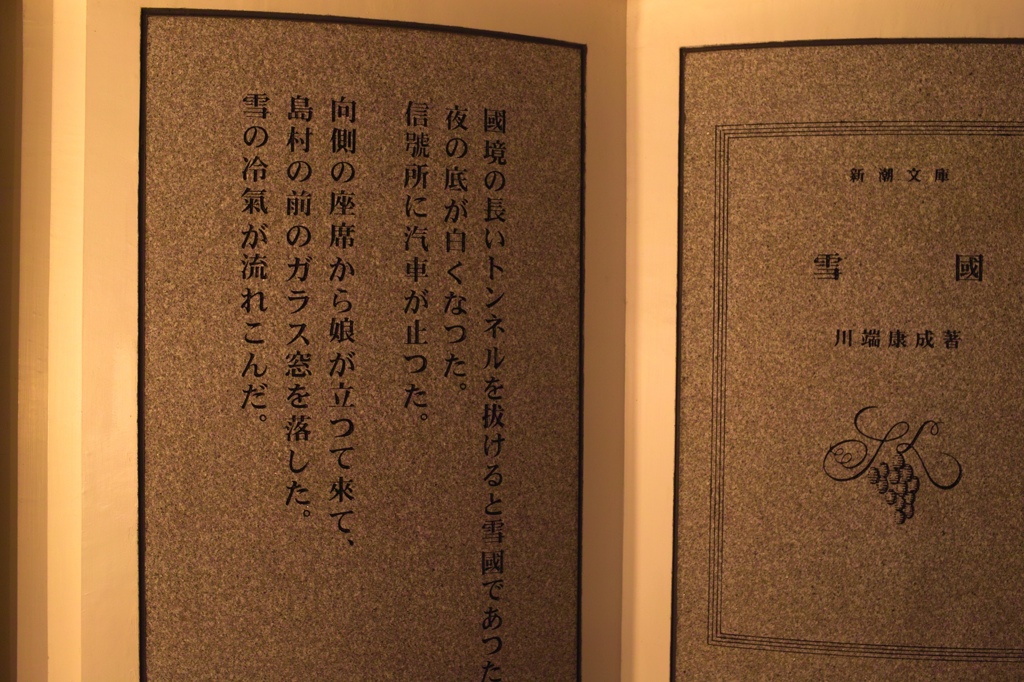 新潮文庫
雪國
川端康成著
國境の長いトンネルを抜けると雪國であつた
夜の底が白くなつた。
信號所に汽車が止つた。
向側の座席から娘が立つて來て、
島村の前のガラス窓を落した。
雪の冷氣が流れこんだ。